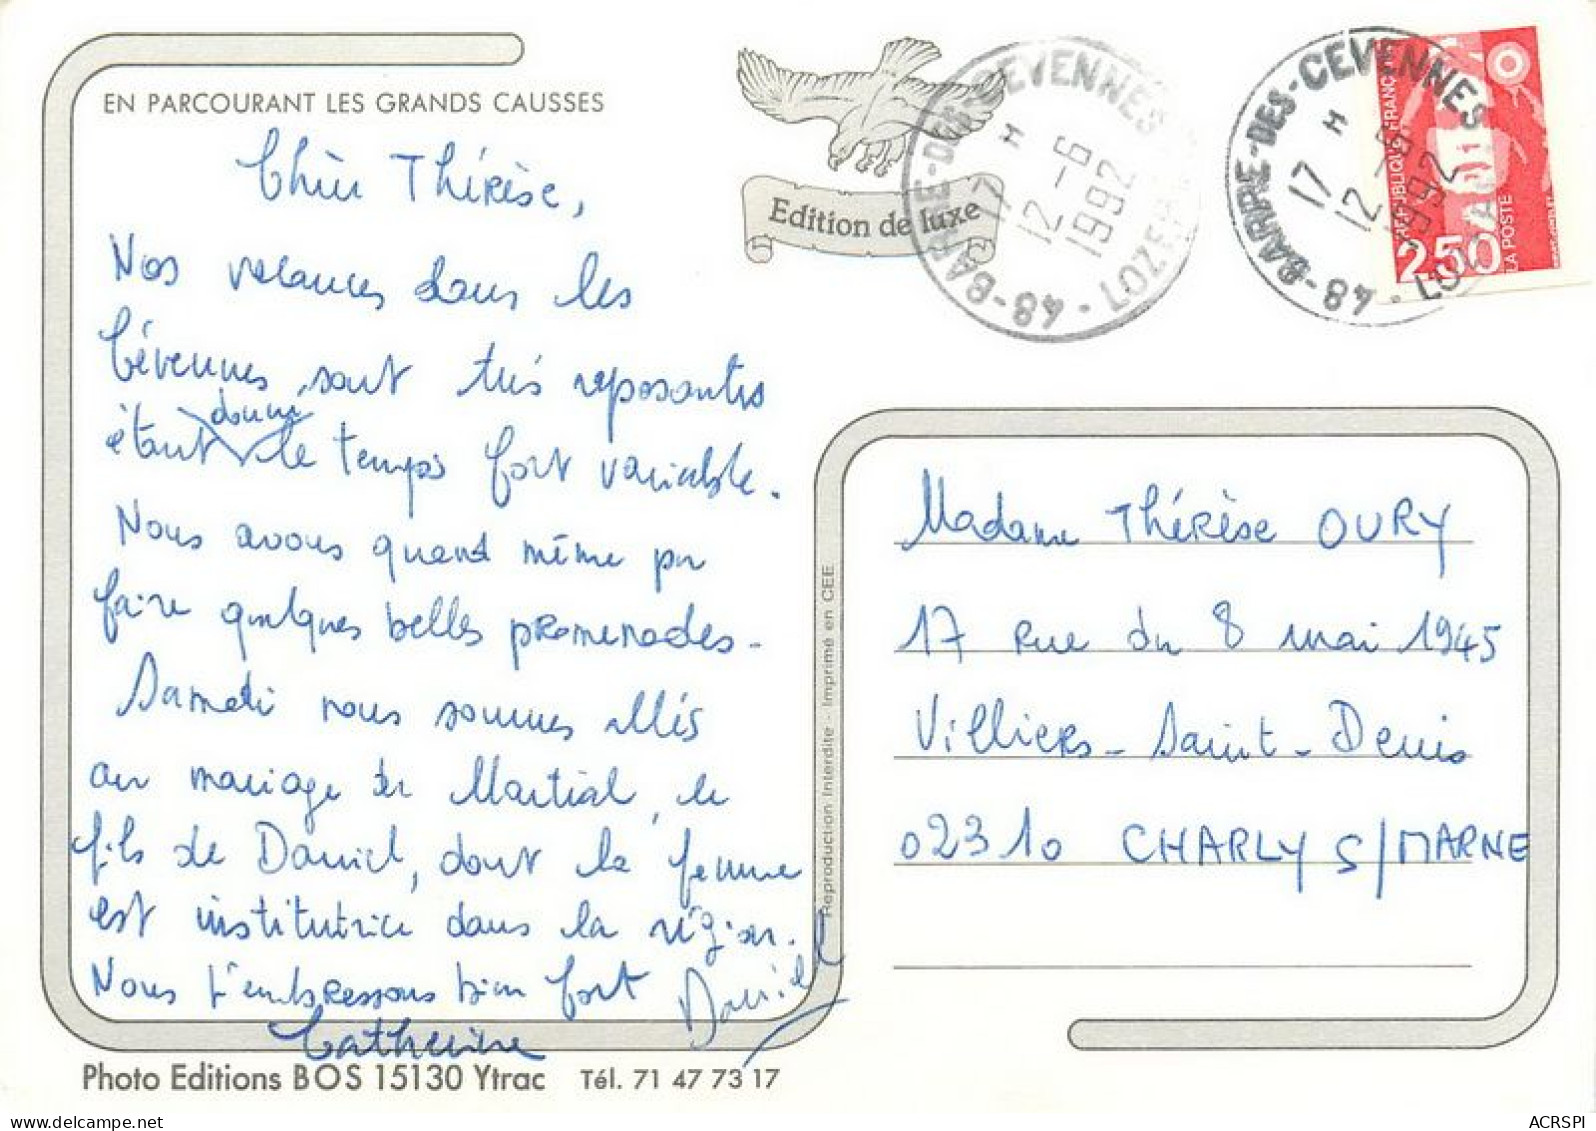 EN PARCOURANT LES GRANDS CAUSSES
Chère Thérèse,
Nos vacances dans les
Cévennes sont très reposantes
étant donné le temps fort variable.
Nous avons quand même pu
faire quelques belles promenades -
Samedi nous sommes allés
au mariage de Martial, le
fils de Daniel, dont la femme
est institutrice dans la région.
Nous t'embrassons bien fort
Daniel
Catherine
Photo Editions BOS 15130 Ytrac Tél. 71 47 73 17
Edition de luxe
48 - BARRE-DES-CEVENNES LOZERE
17 H
12 -6
1992
48 - BARRE-DES-CEVENNES
17 H
12 -6
1992
REPUBLIQUE FRANÇAISE
2,50
LA POSTE
Reproduction Interdite - Imprimé en CEE
Madame Thérèse OURY
17 rue du 8 mai 1945
Villiers - Saint - Denis
02310 CHARLY S/MARNE
www.delcampe.net
ACRSPI